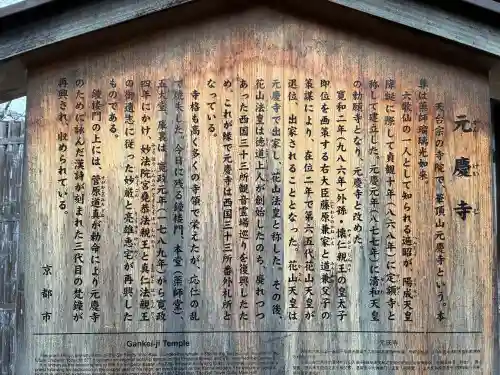 元慶寺
がんけいじ
天台宗の寺院で、華頂山元慶寺という。本
尊は薬師瑠璃光如来。
六歌仙の一人として知られる遍昭が、陽成天皇
降誕に際して貞観十年(八六八年)に定額寺と
称して建立した。元慶元年(八七七年)に清和天皇
の勅願寺となり、元慶寺と改めた。
寛和二年(九八六年)外孫・懐仁親王の皇太子
即位を画策する右大臣藤原兼家と道兼父子の
策謀により、在位二年で第六五代花山天皇が
退位、出家されることとなった。花山天皇は
元慶寺で出家し、花山法皇と称した。その後、
花山法皇は徳道上人が創始したのち、廃れつつ
あった西国三十三所観音霊場巡りを復興したた
め、これが縁で元慶寺は西国三十三所番外札所と
なっている。
寺格も高く多くの寺領で栄えたが、応仁の乱
で焼失した。今日に残る鐘楼門、本堂(薬師堂)、
五大堂、庫裏は、寛政元年(一七八九年)から寛政
四年にかけ、妙法院宮尭恭法親王と真仁法親王
の御遺志に従って妙厳と高雄恵宅が再興した
ものである。
鐘楼門の上には、菅原道真が勅命により元慶寺
のために詠んだ漢詩が刻まれた三代目の梵鐘が
再興され、収められている。
京都市
Gankei-ji Temple
元庆寺